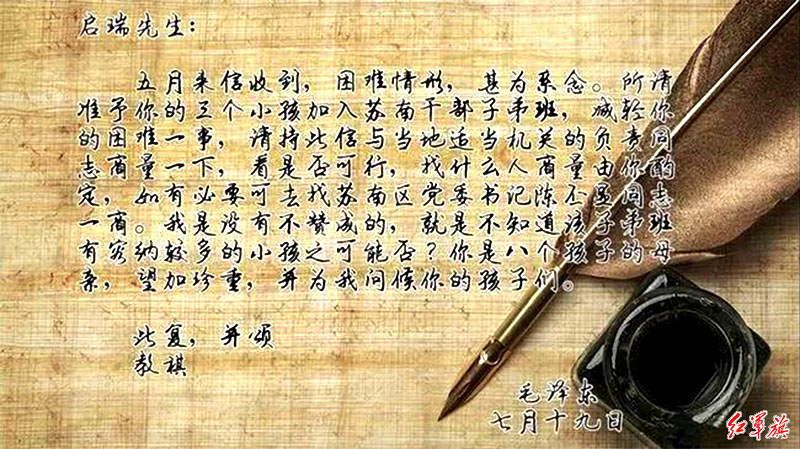 启瑞先生：
五月来信收到，困难情形，甚为系念。所请
准予你的三个小孩加入苏南干部子弟班，减轻你
的困难一事，请持此信与当地适当机关的负责同
志商量一下，看是否可行，找什么人商量由你酌
定，如有必要可去找苏南区党委书记陈丕显同志
一商。我是没有不赞成的，就是不知道该子弟班
有容纳较多的小孩之可能否？你是八个孩子的母
亲，望加珍重，并为我问候你的孩子们。
此复，并颂
教祺
毛泽东
七月十九日
红军旗